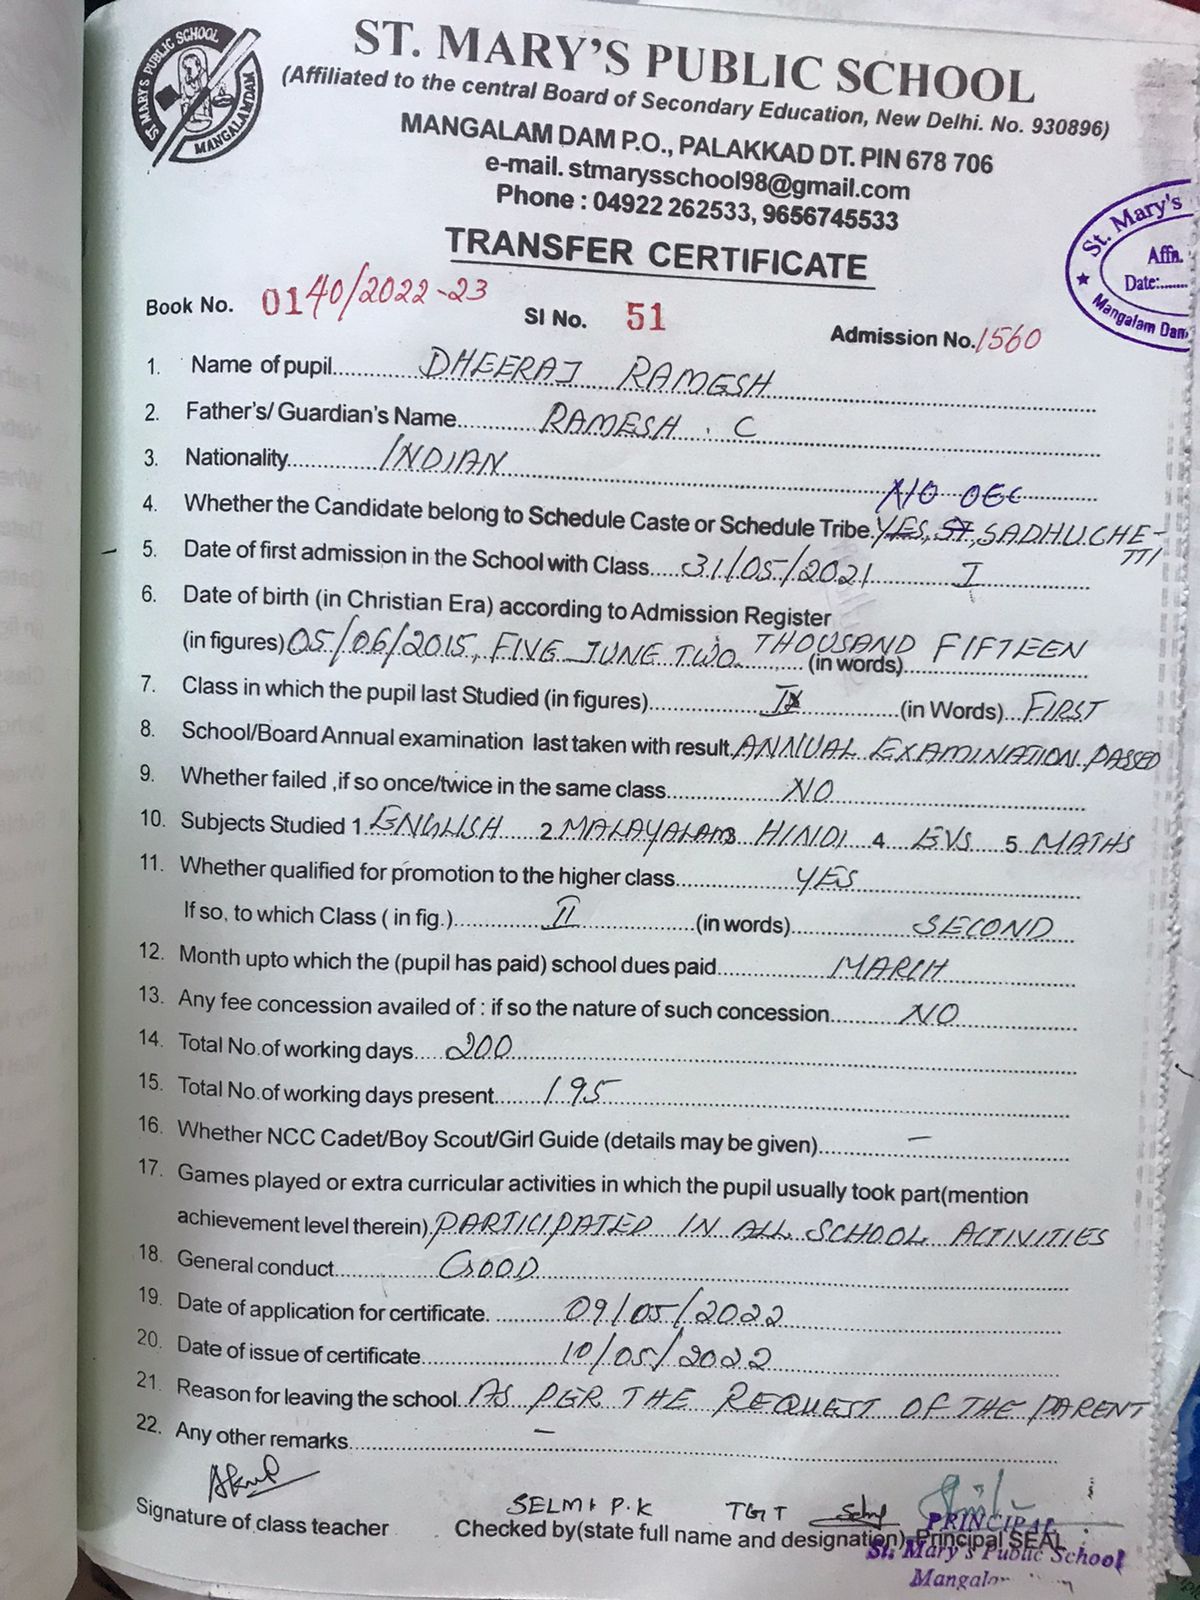 ST. MARY'S PUBLIC SCHOOL
MANGALAMDAM
ST. MARY'S PUBLIC SCHOOL
(Affiliated to the central Board of Secondary Education, New Delhi. No. 930896)
MANGALAM DAM P.O., PALAKKAD DT. PIN 678 706
e-mail. stmarysschool98@gmail.com
Phone : 04922 262533, 9656745533
St. Mary's
Affn.
Date:........
Mangalam Dam
TRANSFER CERTIFICATE
Book No. 0140/2022-23 SI No. 51 Admission No. 1560
1. Name of pupil DHEERAJ RAMESH
2. Father's/ Guardian's Name RAMESH . C
3. Nationality INDIAN
NO OEC
4. Whether the Candidate belong to Schedule Caste or Schedule Tribe. YES, ST, SADHU CHE-
TTI
5. Date of first admission in the School with Class 31/05/2021 I
6. Date of birth (in Christian Era) according to Admission Register
(in figures) 05/06/2015, FIVE JUNE TWO THOUSAND FIFTEEN (in words)
7. Class in which the pupil last Studied (in figures) I (in Words) FIRST
8. School/Board Annual examination last taken with result. ANNUAL EXAMINATION PASSED
9. Whether failed ,if so once/twice in the same class NO
10. Subjects Studied 1 ENGLISH 2 MALAYALAM 3 HINDI 4 EVS 5 MATHS
11. Whether qualified for promotion to the higher class YES
If so, to which Class ( in fig.) II (in words) SECOND
12. Month upto which the (pupil has paid) school dues paid MARCH
13. Any fee concession availed of : if so the nature of such concession NO
14. Total No.of working days 200
15. Total No.of working days present 195
16. Whether NCC Cadet/Boy Scout/Girl Guide (details may be given) —
17. Games played or extra curricular activities in which the pupil usually took part(mention
achievement level therein) PARTICIPATED IN ALL SCHOOL ACTIVITIES
18. General conduct GOOD
19. Date of application for certificate. 09/05/2022
20. Date of issue of certificate 10/05/2022
21. Reason for leaving the school. AS PER THE REQUEST OF THE PARENT
22. Any other remarks —
SELMI P.K TGT
Signature of class teacher Checked by(state full name and designation) Principal SEAL
PRINCIPAL
St. Mary's Public School